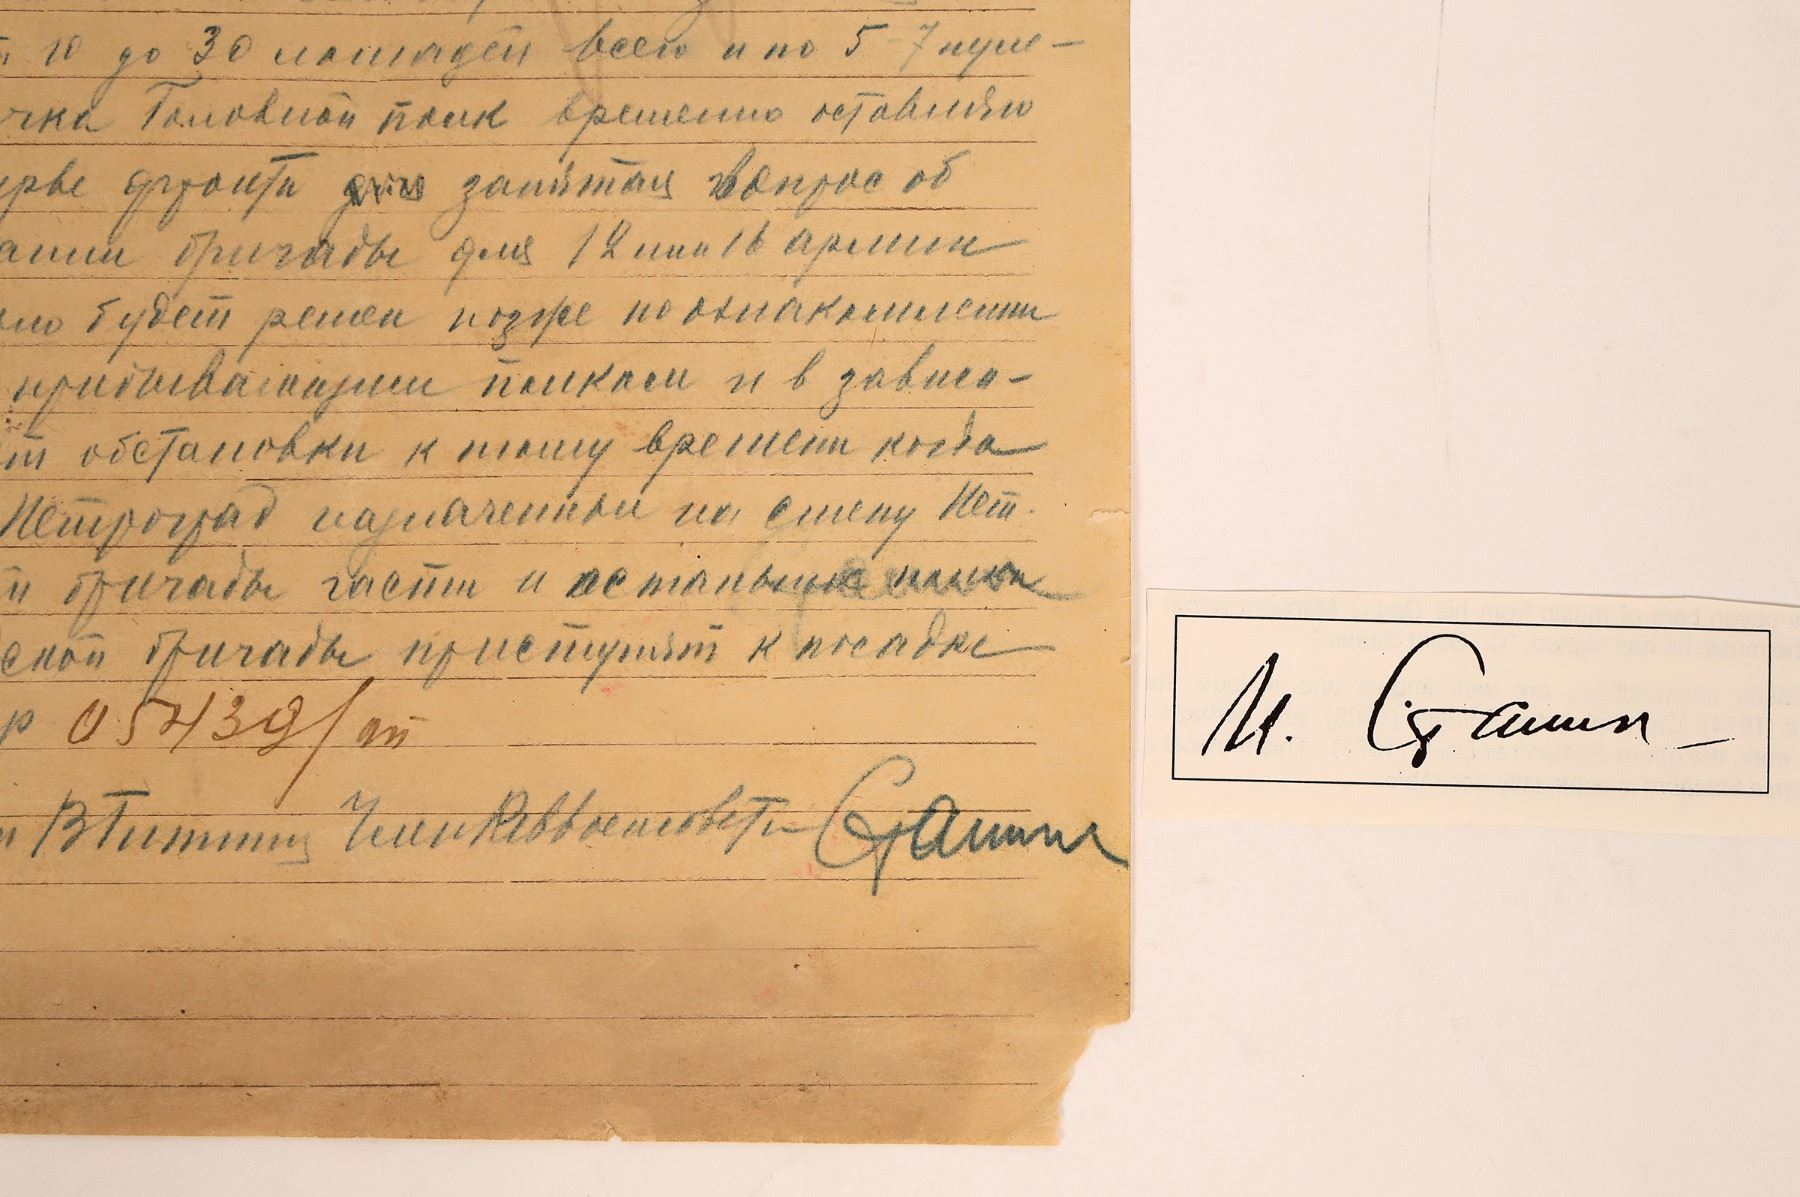 10 до 30 лошадей всего и по 5-7 пуле-
Головной полк временно оставляю
фронта занятая вопрос об
бригады для 12 или 16 армии
будет решен позже по ознакомлении
прибывающими полками и в зависи-
обстановки к тому времени когда
Петроград назначенныи на смену Пет.
бригады части и остальные полки
ской бригады приступят к посадке
р 05439/оп
Член Реввоенсовета Сталин
И. Сталин